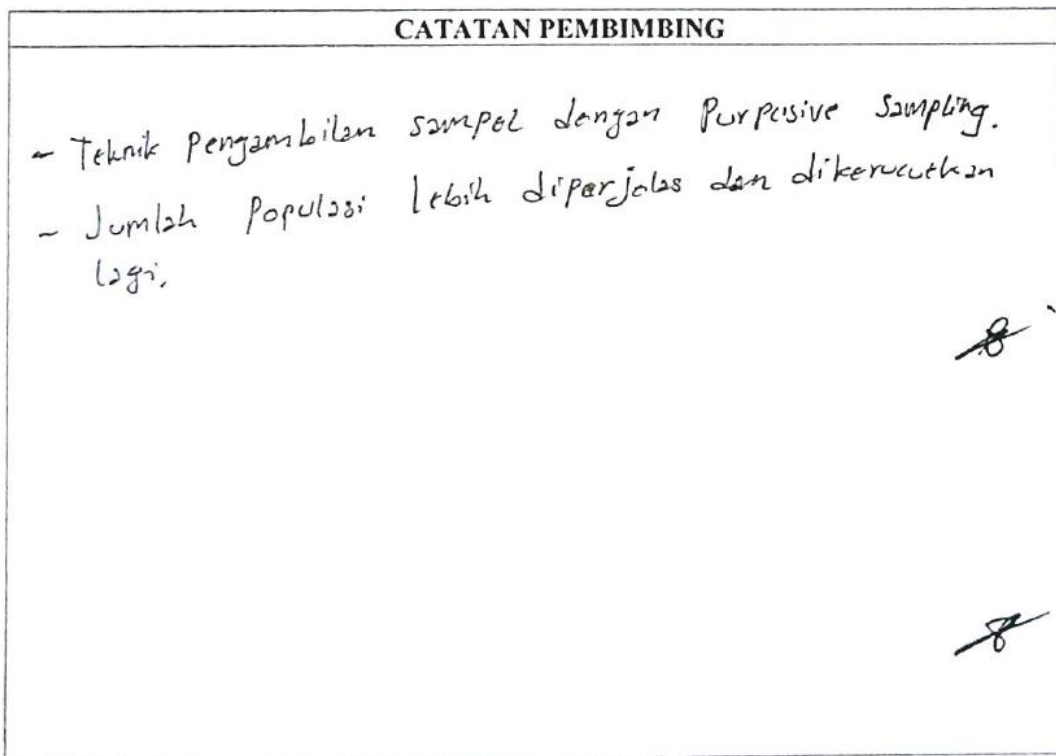 CATATAN PEMBIMBING
- Teknik Pengambilan sampel dengan Purposive Sampling.
- Jumlah Populasi lebih diperjelas dan dikerucutkan
lagi.